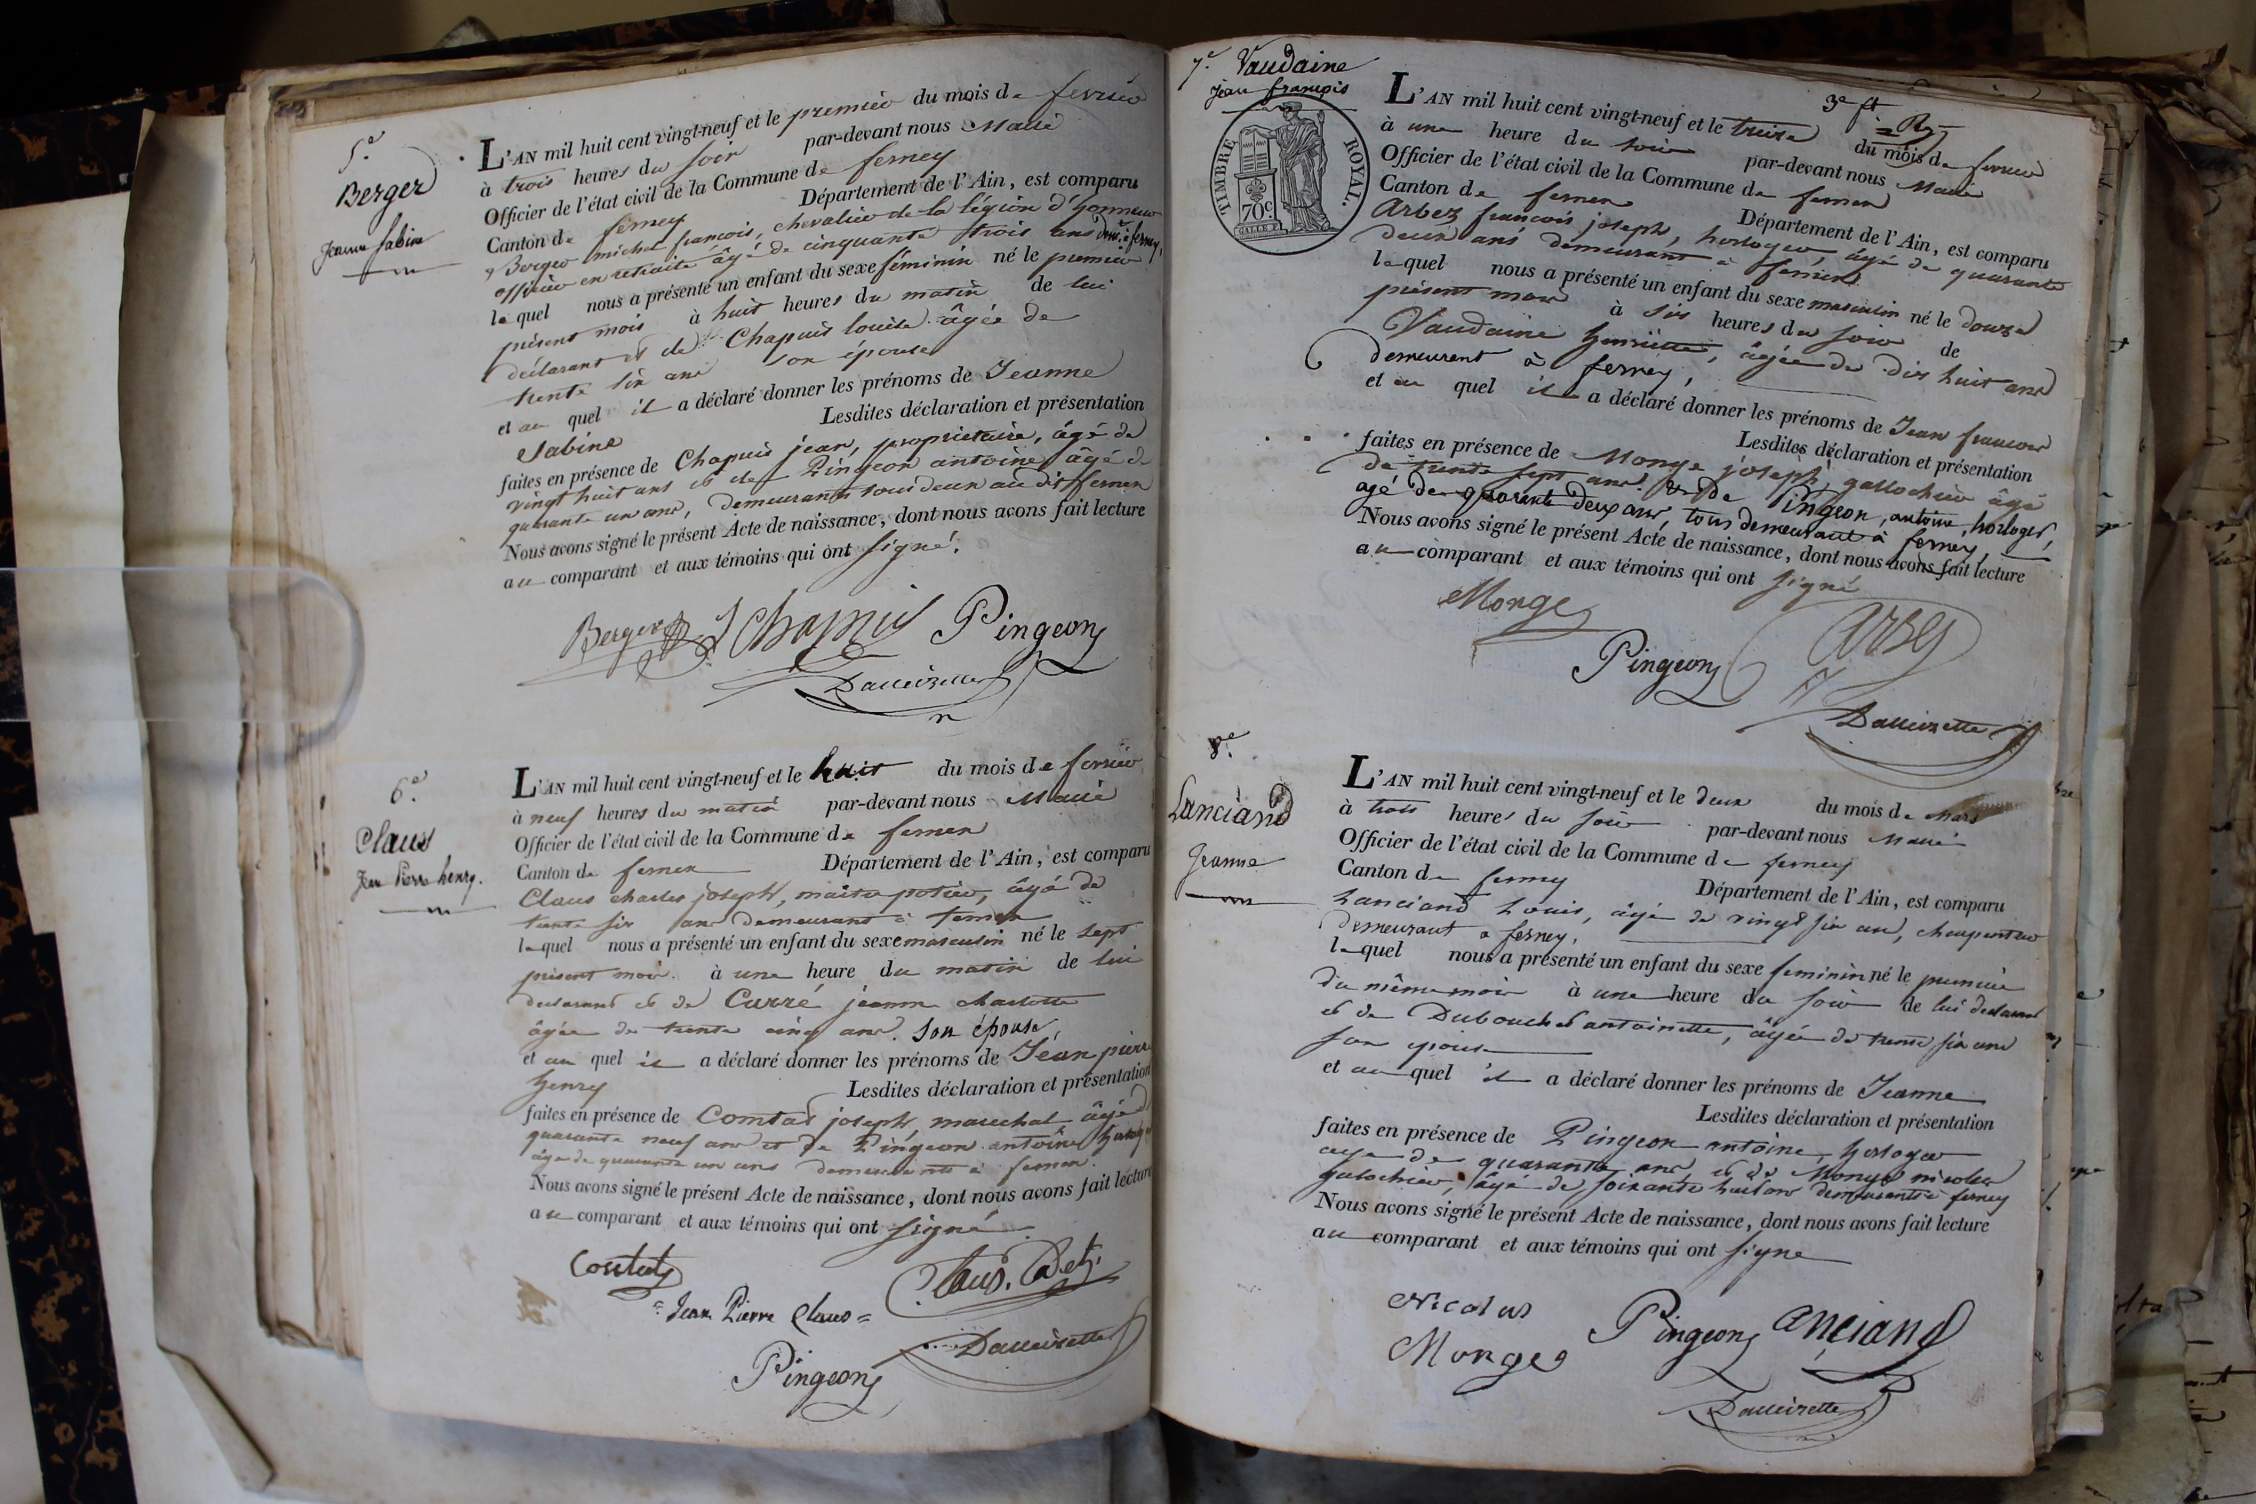 5.e
Berger
Jeanne Sabine
L'AN mil huit cent vingt-neuf et le premier du mois de fevrier
à trois heures du soir par-devant nous Maire
Officier de l'état civil de la Commune de ferney
Canton de ferney Département de l'Ain, est comparu
Berger michel francois, chevalier de la légion d'honneur
officier en retraite âgé de cinquante trois ans dem.t à ferney,
lequel nous a présenté un enfant du sexe féminin né le premier
présent mois à huit heures du matin de lui
déclarant et de Chapuis louise âgée de
trente six ans son épouse
et au quel il a déclaré donner les prénoms de Jeanne
Sabine Lesdites déclaration et présentation
faites en présence de Chapuis jean, proprietaire, âgé de
vingt huit ans et de Pingeon antoine âgé de
quarante un ans, demeurants tous deux au dit ferney
Nous avons signé le présent Acte de naissance, dont nous avons fait lecture
au comparant et aux témoins qui ont signé.
Berger J Chapuis Pingeon
Dallizette
6.e
Claus
Jean Pierre henry.
L'AN mil huit cent vingt-neuf et le huit du mois de fevrier
à neuf heures du matin par-devant nous Maire
Officier de l'état civil de la Commune de ferney
Canton de ferney Département de l'Ain, est comparu
Claus charles joseph, maitre potier, âgé de
trente six ans demeurant à ferney
lequel nous a présenté un enfant du sexe masculin né le sept
présent mois à une heure du matin de lui
declarant et de Curré jeanne charlotte
âgée de trente cinq ans. Son épouse,
et au quel il a déclaré donner les prénoms de Jean pierre
henry Lesdites déclaration et présentation
faites en présence de Contat joseph, marechal âgé de
quarante neuf ans et de Pingeon antoine horloger
âgé de quarante un ans demeurants à ferney.
Nous avons signé le présent Acte de naissance, dont nous avons fait lecture
au comparant et aux témoins qui ont signé
Contat Claus. Cadet.
Jean Pierre Claus
Dallizette
Pingeon
7.e Vaudaine
jean françois
TIMBRE ROYAL.
70c.
3e ft
L'AN mil huit cent vingt-neuf et le treize du mois de fevrier
à une heure du soir par-devant nous Maire
Officier de l'état civil de la Commune de ferney
Canton de ferney Département de l'Ain, est comparu
Arbez francois joseph, horloger, âgé de quarante
deux ans demeurant à ferney
lequel nous a présenté un enfant du sexe masculin né le douze
présent mois à six heures du soir de
Vaudaine henriette, âgée de dix huit ans
demeurent à ferney,
et au quel il a déclaré donner les prénoms de Jean francois
Lesdites déclaration et présentation
faites en présence de Monge joseph, gallochier âgé
de trente sept ans. et de Pingeon, antoine, horloger,
agé de quarante deux ans, tous demeurant à ferney,
Nous avons signé le présent Acte de naissance, dont nous avons fait lecture
au comparant et aux témoins qui ont signé
Monge
Pingeon Arbez
Dallizette
8.e
Lanciand
Jeanne
L'AN mil huit cent vingt-neuf et le deux du mois de Mars
à trois heures du soir par-devant nous Maire
Officier de l'état civil de la Commune de ferney
Canton de ferney Département de l'Ain, est comparu
Lanciand Louis, âgé de vingt six ans, charpentier
demeurant à ferney.
lequel nous a présenté un enfant du sexe feminin né le premier
du même mois à une heure du soir de lui declarant
et de Dubouchet antoinette, âgée de trente six ans
son épouse
et au quel il a déclaré donner les prénoms de Jeanne
Lesdites déclaration et présentation
faites en présence de Pingeon antoine, horloger
agé de quarante ans et de Monge nicolas
galochier, âgé de soixante huit ans demeurants à ferney
Nous avons signé le présent Acte de naissance, dont nous avons fait lecture
au comparant et aux témoins qui ont signe
Nicolas
Monge Pingeon anciand
Dallizette